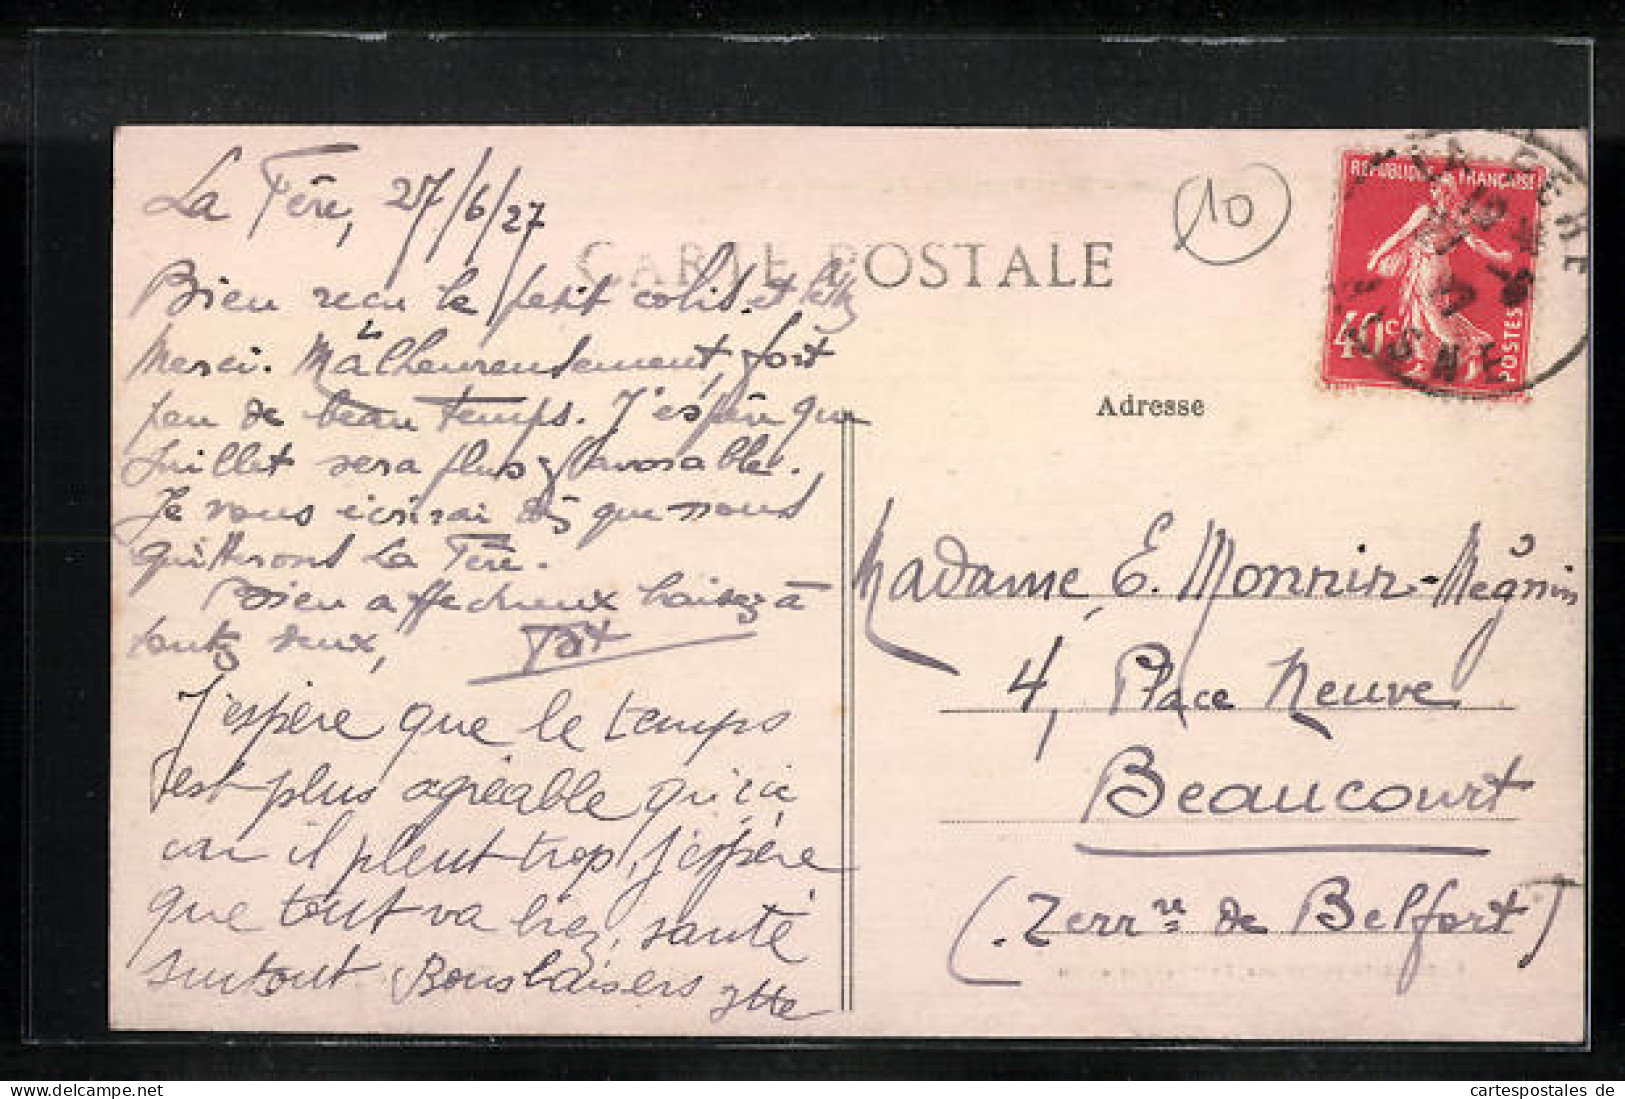 La Fère, 27/6/27
CARTE POSTALE
10
REPUBLIQUE FRANÇAISE
40c
POSTES
LA FERE
AISNE
Bien reçu le petit colis. et
Merci. Malheureusement, fort
peu de beau temps. J'espère que
Juillet sera plus favorable.
Je vous écrirai dès que nous
quitterons La Fère.
Bien affectueux baisers à
toutes deux,
J'espère que le temps
est plus agréable qu'ici
car il pleut trop, j'espère
que tout va bien, santé
surtout. Bons baisers
Adresse
Madame E. Monnin-Mégnin
4, Place Neuve
Beaucourt
(Terr.re de Belfort)
cartespostales de